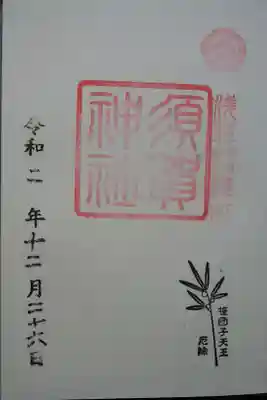 須賀
神社
笹団子天王
厄除
令和二年十二月二十六日